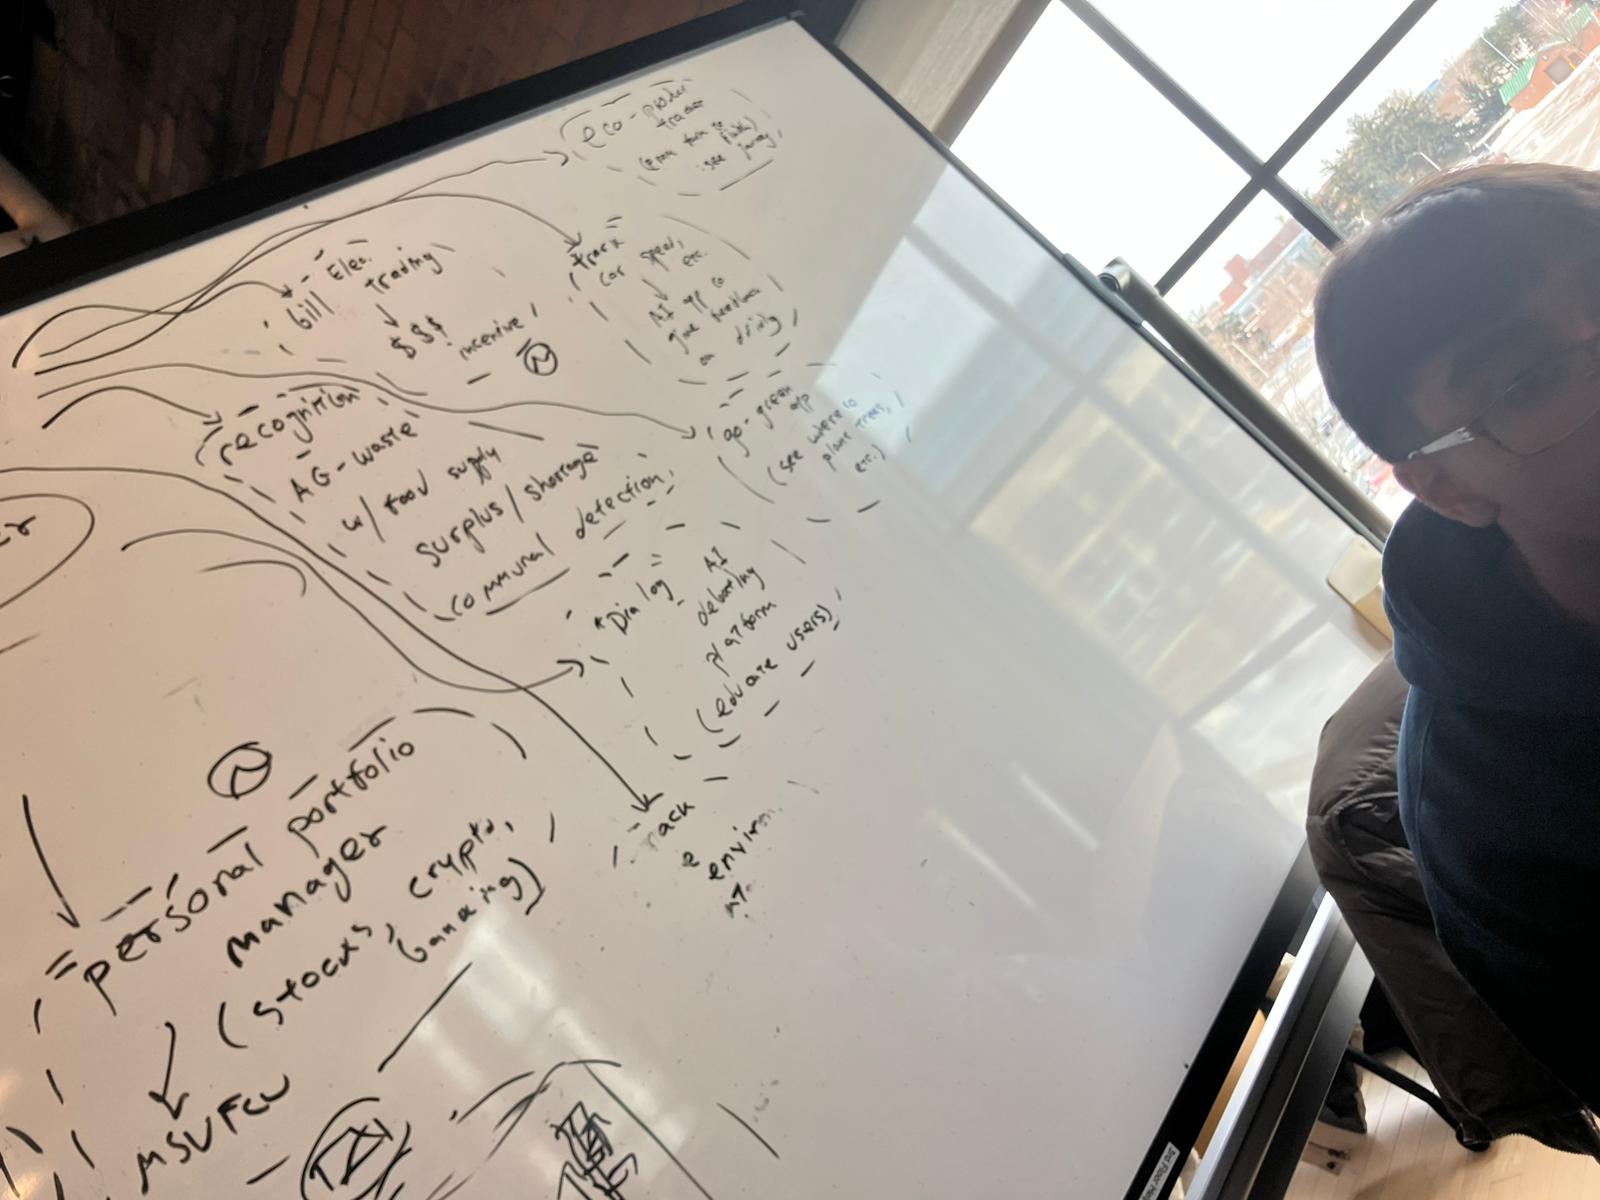 eco-
tracker
see
Elec.
bill trading
$$$
incentive
N
track
car speed,
etc.
AI app to
give feedback
on driving
recognition
AG-waste
w/ food supply
surplus/shortage
communal detection
go-green
app
(see where to
plant trees,
etc.)
"Dialog" AI
debating
platform
(educate users)
environ.
er
personal portfolio
manager
(stocks, crypto,
banking)
MSUFCU
3rd Floor